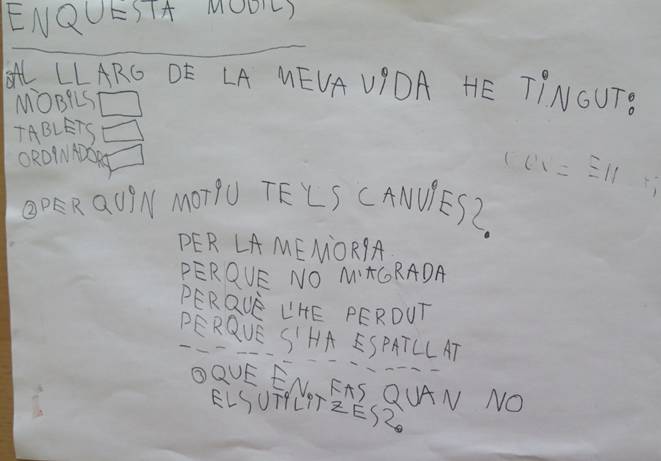 ENQUESTA MÒBILS
①AL LLARG DE LA MEVA VIDA HE TINGUT:
MÒBILS
TABLETS
ORDINADORS
②PER QUIN MOTIU TE'LS CANVIES?
PER LA MEMÒRIA
PERQUE NO M'AGRADA
PERQUÈ L'HE PERDUT
PERQUE S'HA ESPATLLAT
③QUE EN FAS QUAN NO
ELSUTILITZES?